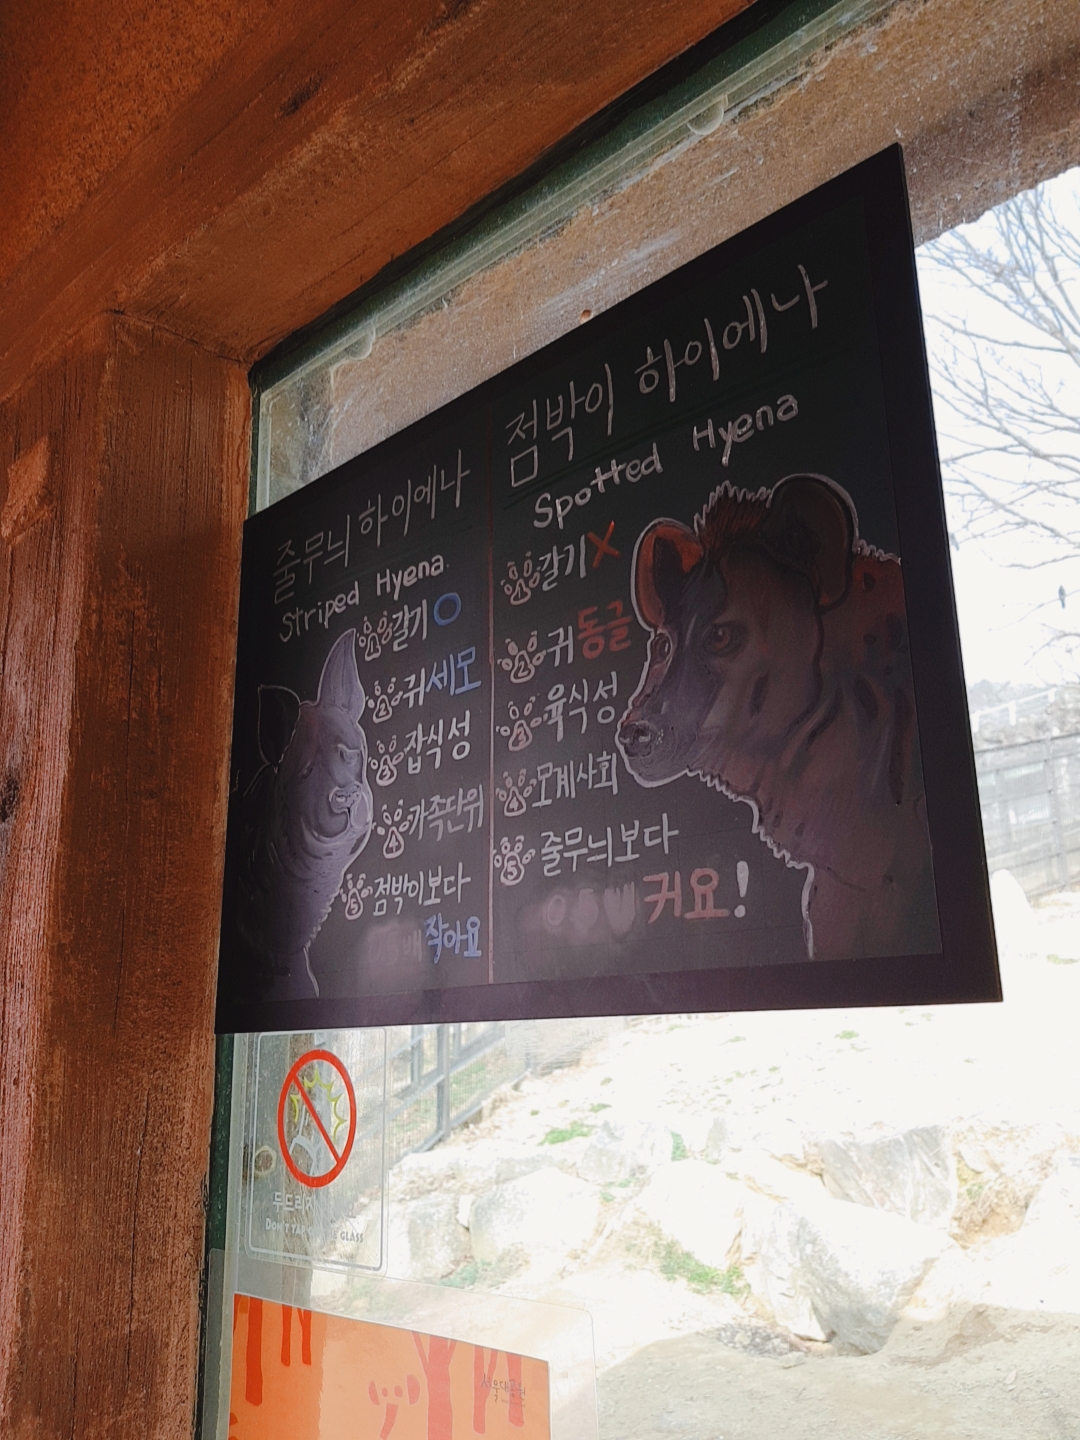 줄무늬 하이에나
Striped Hyena
1 갈기 O
2 귀 세모
3 잡식성
4 가족단위
5 점박이보다
작아요
점박이 하이에나
Spotted Hyena
1 갈기 X
2 귀 동글
3 육식성
4 모계사회
5 줄무늬보다
귀요!
DON'T TAP GLASS
서울대공원